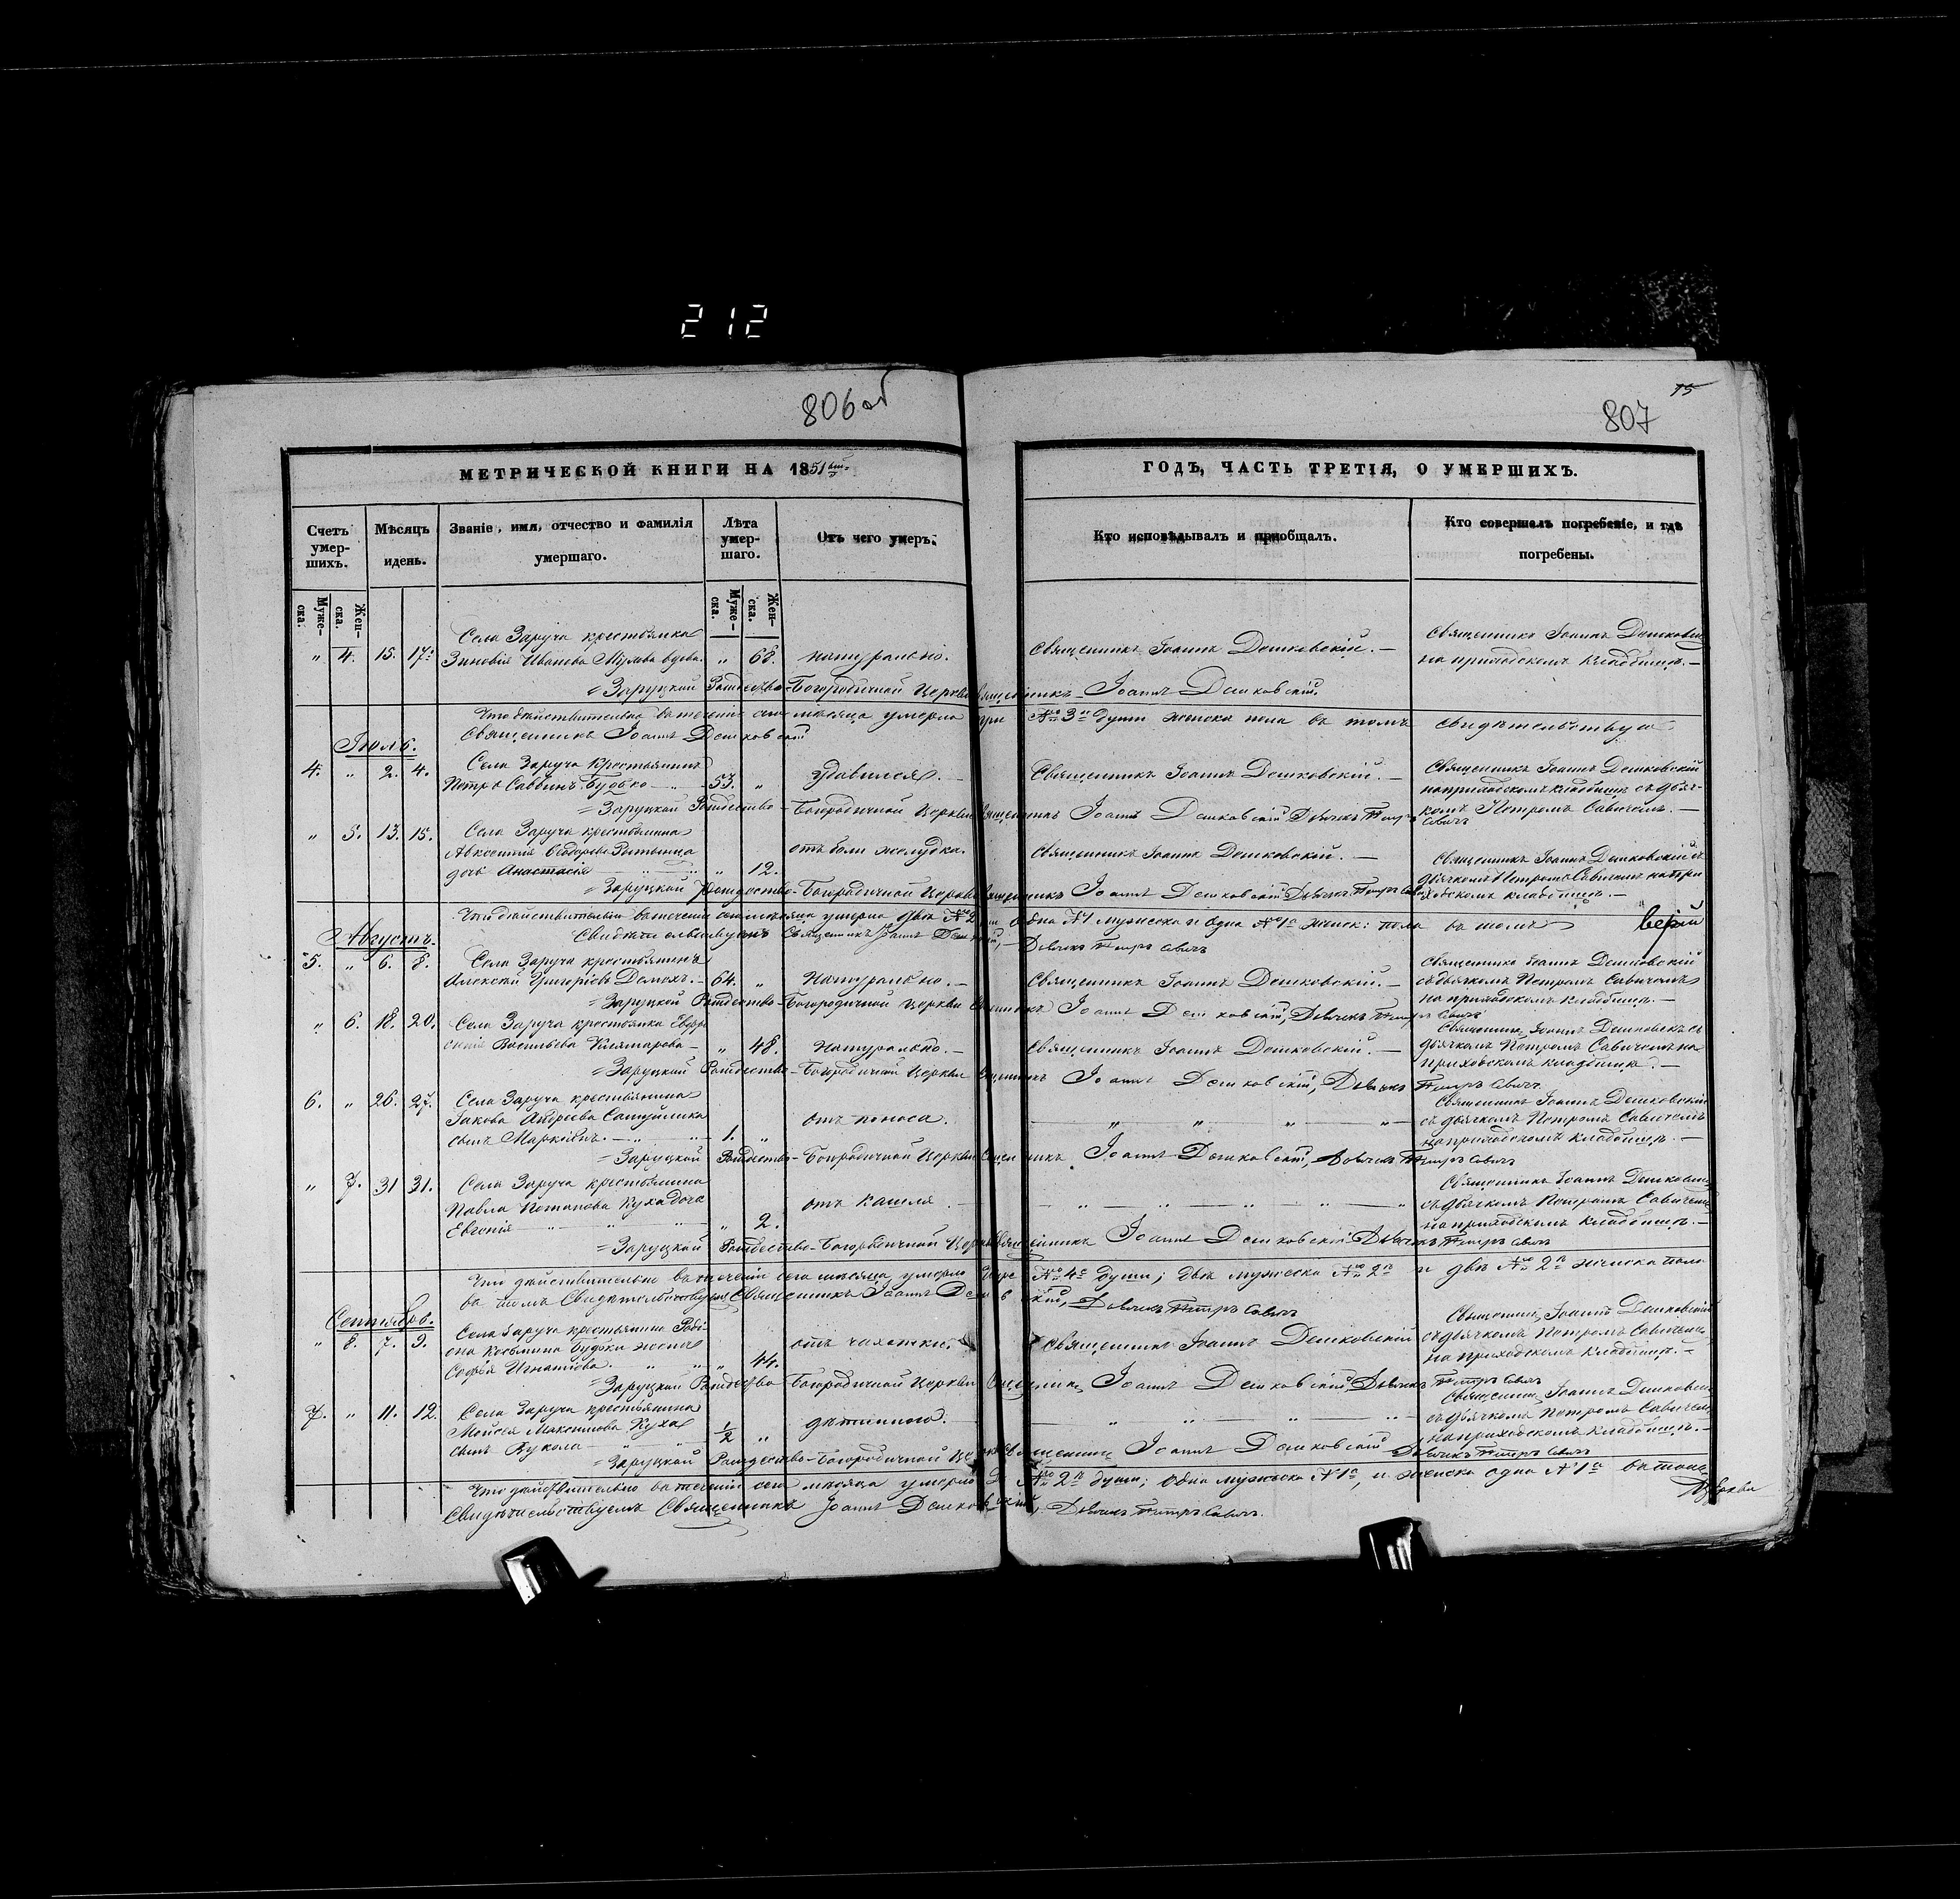 212
806 об
МЕТРИЧЕСКОЙ КНИГИ НА 1851
Счетъ умер-шихъ.
Мѣсяцъ идень.
Званіе, имя, отчество и фамилія умершаго.
Лѣта умер-шаго.
Отъ чего умеръ.
Муже-ска.
Жен-ска.
Муже-ска.
Жен-ска.
„ 4. 15. 17. Села Заруча крестьянка
Зиновія Иванова вдова. „ 68. натурально.
Заруцкой Рождество-Богородичной Церкви Священникъ Іоаннъ Дешковскій
Что дѣйствительно въ теченіи сего мѣсяца умерло три № 3 души женска пола въ томъ свидѣтельствую
Священникъ Іоаннъ Дешковскій
Іюль.
4. „ 2. 4. Села Заруча крестьянинъ
Петръ Саввинъ Будько 53. „ удавился.
Заруцкой Рождество-Богородичной Церкви Священникъ Іоаннъ Дешковскій Дьячекъ Петръ Савичъ
„ 5. 13. 15. Села Заруча крестьянина
Авксентія Ѳеодорова
дочь Анастасія „ 12. отъ боли желудка.
Заруцкой Рождество-Богородичной Церкви Священникъ Іоаннъ Дешковскій Дьячекъ Петръ Савичъ
Что дѣйствительно въ теченіи сего мѣсяца умерло двѣ № 2 души одна № 1 мужеска и одна № 1 женск: пола въ томъ
Свидѣтельствуемъ Священникъ Іоаннъ Дешковскій, Дьячекъ Петръ Савичъ
Августъ.
5. „ 6. 8. Села Заруча крестьянинъ
Алексѣй Григорьевъ Домохъ. 64. „ Натурально.
Заруцкой Рождество-Богородичной Церкви Священникъ Іоаннъ Дешковскій, Дьячекъ Петръ Савичъ
„ 6. 18. 20. Села Заруча крестьянка Евфро
синія Васильева „ 48. Натурально.
Заруцкой Рождество-Богородичной Церкви Священникъ Іоаннъ Дешковскій, Дьячекъ Петръ Савичъ
6. „ 26. 27. Села Заруча крестьянина
Іакова Андреева
сынъ Маркіянъ. 1. „ отъ поноса.
Заруцкой Рождество-Богородичной Церкви Священникъ Іоаннъ Дешковскій, Дьячекъ Петръ Савичъ
„ 7. 31 31. Села Заруча крестьянина
Павла Потапова Куха дочь
Евгенія „ 2. отъ кашля
Заруцкой Рождество-Богородичной Церкви Священникъ Іоаннъ Дешковскій Дьячекъ Петръ Савичъ
Что дѣйствительно въ теченіи сего мѣсяца умерло № 4 души; двѣ мужеска № 2 и двѣ № 2 женска пола
въ томъ Свидѣтельствуемъ Священникъ Іоаннъ Дешковскій, Дьячекъ Петръ Савичъ
Сентябрь.
„ 8. 7. 9. Села Заруча крестьянина Роді
она Косьмина Будьки жена
Софія Игнатіова. „ 44. отъ чахотки.
Заруцкой Рождество Богородичной Церкви Священникъ Іоаннъ Дешковскій Дьячекъ Петръ Савичъ
7. „ 11. 12. Села Заруча крестьянина
Моисея Максимова Куха
сынъ Вукола 1/2 „ дѣтинного.
Заруцкой Рождество-Богородичной Церкви Священникъ Іоаннъ Дешковскій Дьячекъ Петръ Савичъ
Что дѣйствительно въ теченіи сего мѣсяца умерло № 2 души; одна мужеска № 1, и женска одна № 1 въ томъ
Свидѣтельствуемъ Священникъ Іоаннъ Дешковскій, Дьячекъ Петръ Савичъ.
75
807
ГОДЪ, ЧАСТЬ ТРЕТІЯ, О УМЕРШИХЪ.
Кто исповѣдывалъ и приобщалъ.
Кто совершалъ погребеніе, и гдѣ погребены.
Священникъ Іоаннъ Дешковскій.
Священникъ Іоаннъ Дешковскій
на приходскомъ кладбищѣ.
Священникъ Іоаннъ Дешковскій.
Священникъ Іоаннъ Дешковскій
на приходскомъ кладбищѣ съ дьяч-
комъ Петромъ Савичемъ.
Священникъ Іоаннъ Дешковскій.
Священникъ Іоаннъ Дешковскій съ
дьячкомъ Петромъ Савичемъ на при
ходскомъ кладбищѣ.
верій
Священникъ Іоаннъ Дешковскій.
Священникъ Іоаннъ Дешковскій
съ дьячкомъ Петромъ Савичемъ
на приходскомъ кладбищѣ.
Священникъ Іоаннъ Дешковскій.
Священникъ Іоаннъ Дешковскъ съ
дьячкомъ Петромъ Савичемъ на
приходскомъ кладбищѣ.
Священникъ Іоаннъ Дешковскій
съ дьячкомъ Петромъ Савичемъ
на приходскомъ кладбищѣ.
Священникъ Іоаннъ Дешковскій
съ дьячкомъ Петромъ Савичемъ
на приходскомъ кладбищѣ.
Священникъ Іоаннъ Дешковскій
Священникъ Іоаннъ Дешковскій
съ дьячкомъ Петромъ Савичемъ
на приходскомъ кладбищѣ.
Священникъ Іоаннъ Дешковскій
съ дьячкомъ Петромъ Савичемъ
на приходскомъ кладбищѣ.